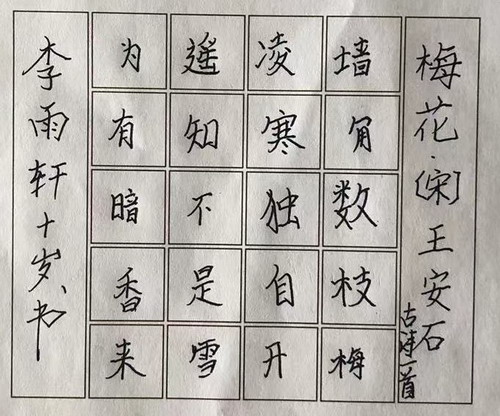 梅花·〔宋〕王安石
古诗一首
墙角数枝梅
凌寒独自开
遥知不是雪
为有暗香来
李雨轩十岁书